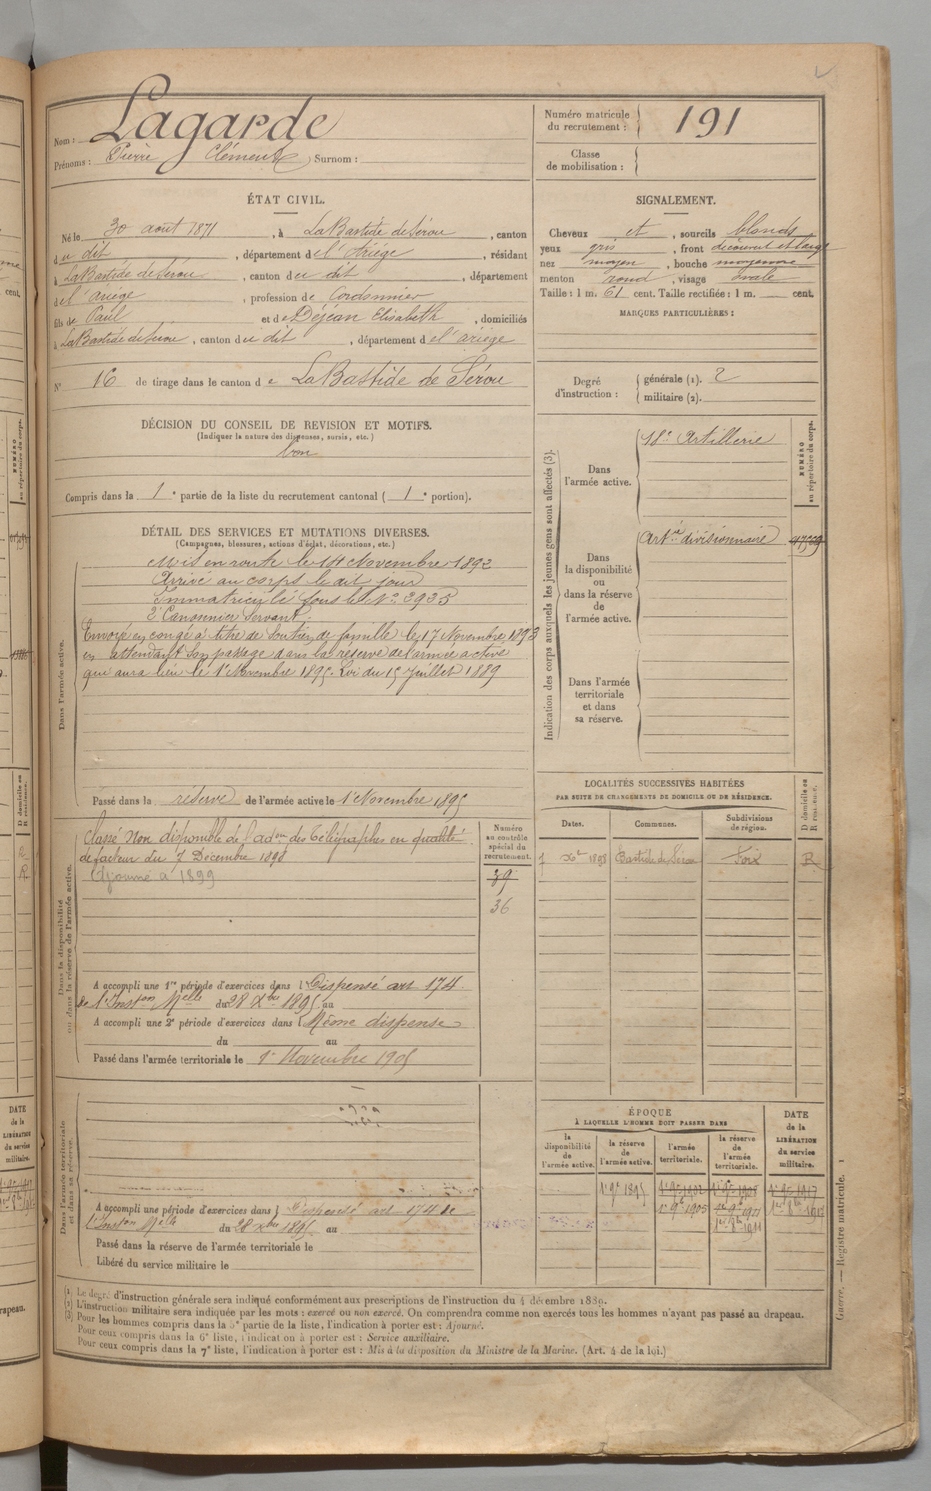 Nom : Lagarde
Prénoms : Pierre Clément, Surnom :
Numéro matricule
du recrutement : 191
Classe
de mobilisation :
ÉTAT CIVIL.
Né le 30 août 1871, à LaBastide de Sérou, canton
du dit, département de l'Ariège, résidant
à LaBastide de Sérou, canton du dit, département
de l'ariège, profession de Cordonnier
fils de Paul et de Déjean Elisabeth, domiciliés
à LaBastide de Sérou, canton du dit, département de l'ariège
N° 16 de tirage dans le canton de LaBastide de Sérou
SIGNALEMENT.
Cheveux et, sourcils blonds
yeux gris, front découvert et large
nez moyen, bouche moyenne
menton rond, visage ovale
Taille : 1 m. 61 cent. Taille rectifiée : 1 m. cent.
MARQUES PARTICULIÈRES :
Degré
d'instruction :
générale (1). 2
militaire (2).
DÉCISION DU CONSEIL DE REVISION ET MOTIFS.
(Indiquer la nature des dispenses, sursis, etc.)
bon
Compris dans la 1e partie de la liste du recrutement cantonal (1e portion).
DÉTAIL DES SERVICES ET MUTATIONS DIVERSES.
(Campagnes, blessures, actions d'éclat, décorations, etc.)
Dans l'armée active.
Mis en route le 14 Novembre 1892
Arrivé au corps le dit jour
Immatriculé sous le No 3935
2e Canonnier Servant.
Envoyé en congé à titre de soutien de famille le 17 Novembre 1893
en attendant son passage dans la réserve de l'armée active
qui aura lieu le 1er Novembre 1895. Loi du 15 Juillet 1889
Passé dans la réserve de l'armée active le 1er Novembre 1895
Indication des corps auxquels les jeunes gens sont affectés (3).
Dans
l'armée active.
18e Artillerie
NUMÉRO
au répertoire du corps.
Dans
la disponibilité
ou
dans la réserve
de
l'armée active.
Artie divisionnaire
Dans l'armée
territoriale
et dans
sa réserve.
LOCALITÉS SUCCESSIVES HABITÉES
PAR SUITE DE CHANGEMENTS DE DOMICILE OU DE RÉSIDENCE.
Dates.
Communes.
Subdivisions
de région.
D domicile ou
R résidence.
7 Xbre 1898 Bastide de Sérou Foix R
Dans la disponibilité
ou dans la réserve de l'armée active.
Numéro
au contrôle
spécial du
recrutement.
39
36
Classé Non disponible de l'adon des Télégraphes en qualité
de facteur du 7 Décembre 1898
Ajourné à 1899
A accompli une 1re période d'exercices dans l Dispensé art 174
de l'Inston Melle du 28 Xbre 1895 au
A accompli une 2e période d'exercices dans l Même dispense
du au
Passé dans l'armée territoriale le 1er Novembre 1905
Dans l'armée territoriale
et dans sa réserve.
A accompli une période d'exercices dans l Dispensé art 174 de
l'Inston Melle du 28 Xbre 1895 au
Passé dans la réserve de l'armée territoriale le
Libéré du service militaire le
ÉPOQUE
À LAQUELLE L'HOMME DOIT PASSER DANS
la
disponibilité
de
l'armée active.
la réserve
de
l'armée active.
l'armée
territoriale.
la réserve
de
l'armée
territoriale.
DATE
de la
LIBÉRATION
du service
militaire.
1er 9e 1895
1er 9e 1905
(1) Le degré d'instruction générale sera indiqué conformément aux prescriptions de l'instruction du 4 décembre 1889.
(2) L'instruction militaire sera indiquée par les mots : exercé ou non exercé. On comprendra comme non exercés tous les hommes n'ayant pas passé au drapeau.
(3) Pour les hommes compris dans la 5e partie de la liste, l'indication à porter est : Ajourné.
Pour ceux compris dans la 6e liste, l'indication à porter est : Service auxiliaire.
Pour ceux compris dans la 7e liste, l'indication à porter est : Mis à la disposition du Ministre de la Marine. (Art. 4 de la loi.)
Guerre. — Registre matricule. 1
DATE
de la
LIBÉRATION
du service
militaire.